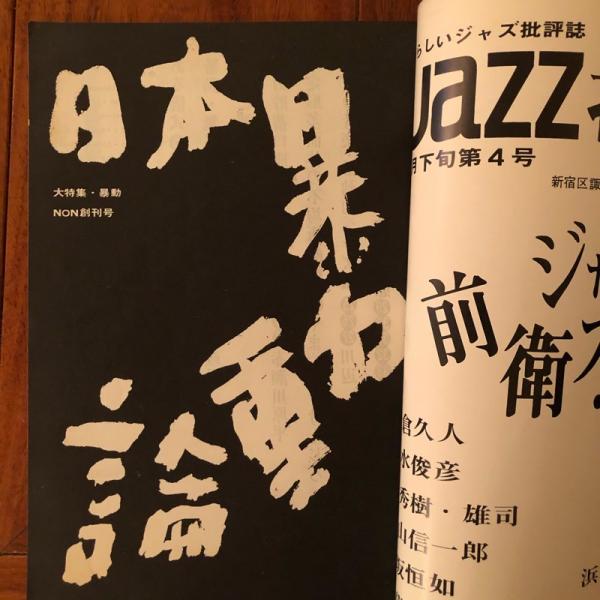 日本暴動論
大特集・暴動
NON創刊号
らしいジャズ批評誌
Jazz
月下旬第4号
新宿区諏
ジャズ
前衛
倉久人
水俊彦
秀樹・雄司
山信一郎
恒如
浜